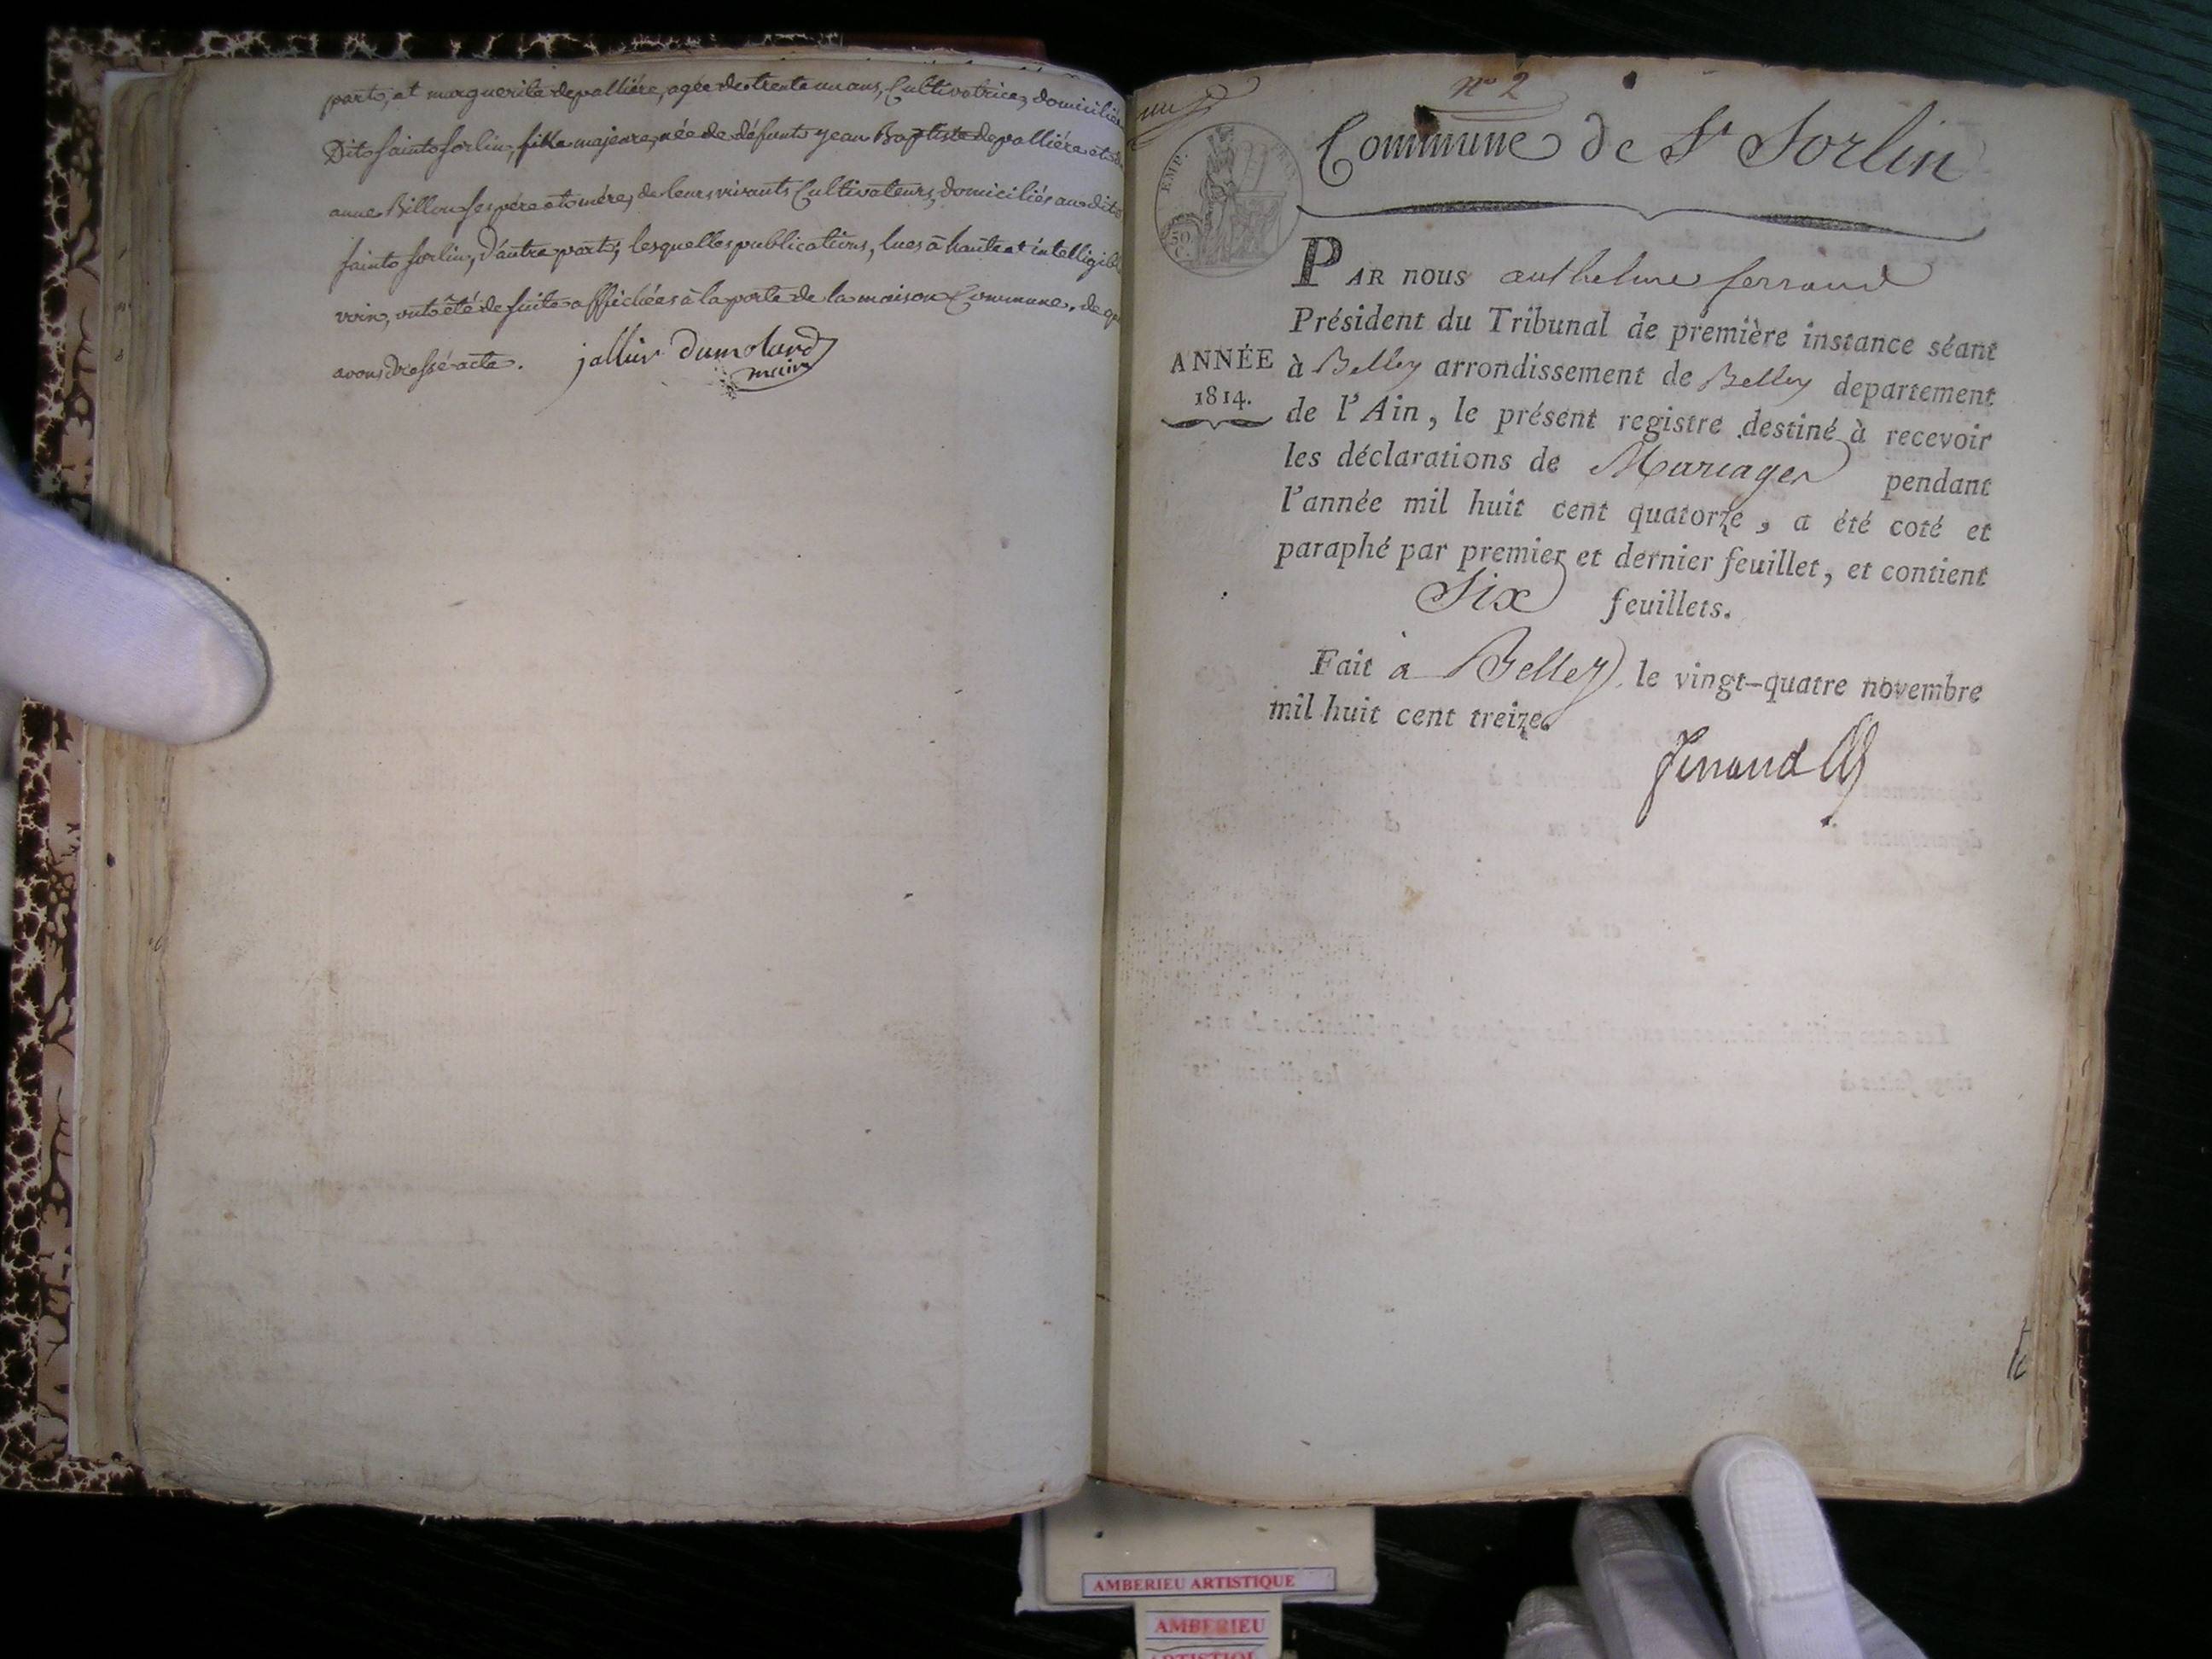 part, et marguerite depallière, agée de trente un ans, Cultivatrice, domiciliée
Dit saint sorlin, fille majeure, née de défunts jean Baptiste depallière et d'
anne Billon ses père et mère, de leurs vivants Cultivateurs, domiciliés au dit
saint sorlin, d'autre part; lesquelles publications, lues à haute et intelligible
voix, ont été de suite affichées à la porte de la maison Commune. de q
avons dressé acte. jallier dumolard
maire
un
n° 2
Commune de St Sorlin
EMP.
50
C.
PAR nous anthelme ferrand
Président du Tribunal de première instance séant
ANNÉE
1814.
à Belley arrondissement de Belley departement
de l'Ain, le présent registre destiné à recevoir
les déclarations de Mariages pendant
l'année mil huit cent quatorze, a été coté et
paraphé par premier et dernier feuillet, et contient
Six feuillets.
Fait à Belley, le vingt-quatre novembre
mil huit cent treize.
ferrand
AMBERIEU ARTISTIQUE
AMBERIEU
ARTISTIQUE